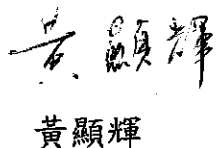 黃顯輝
黃顯輝